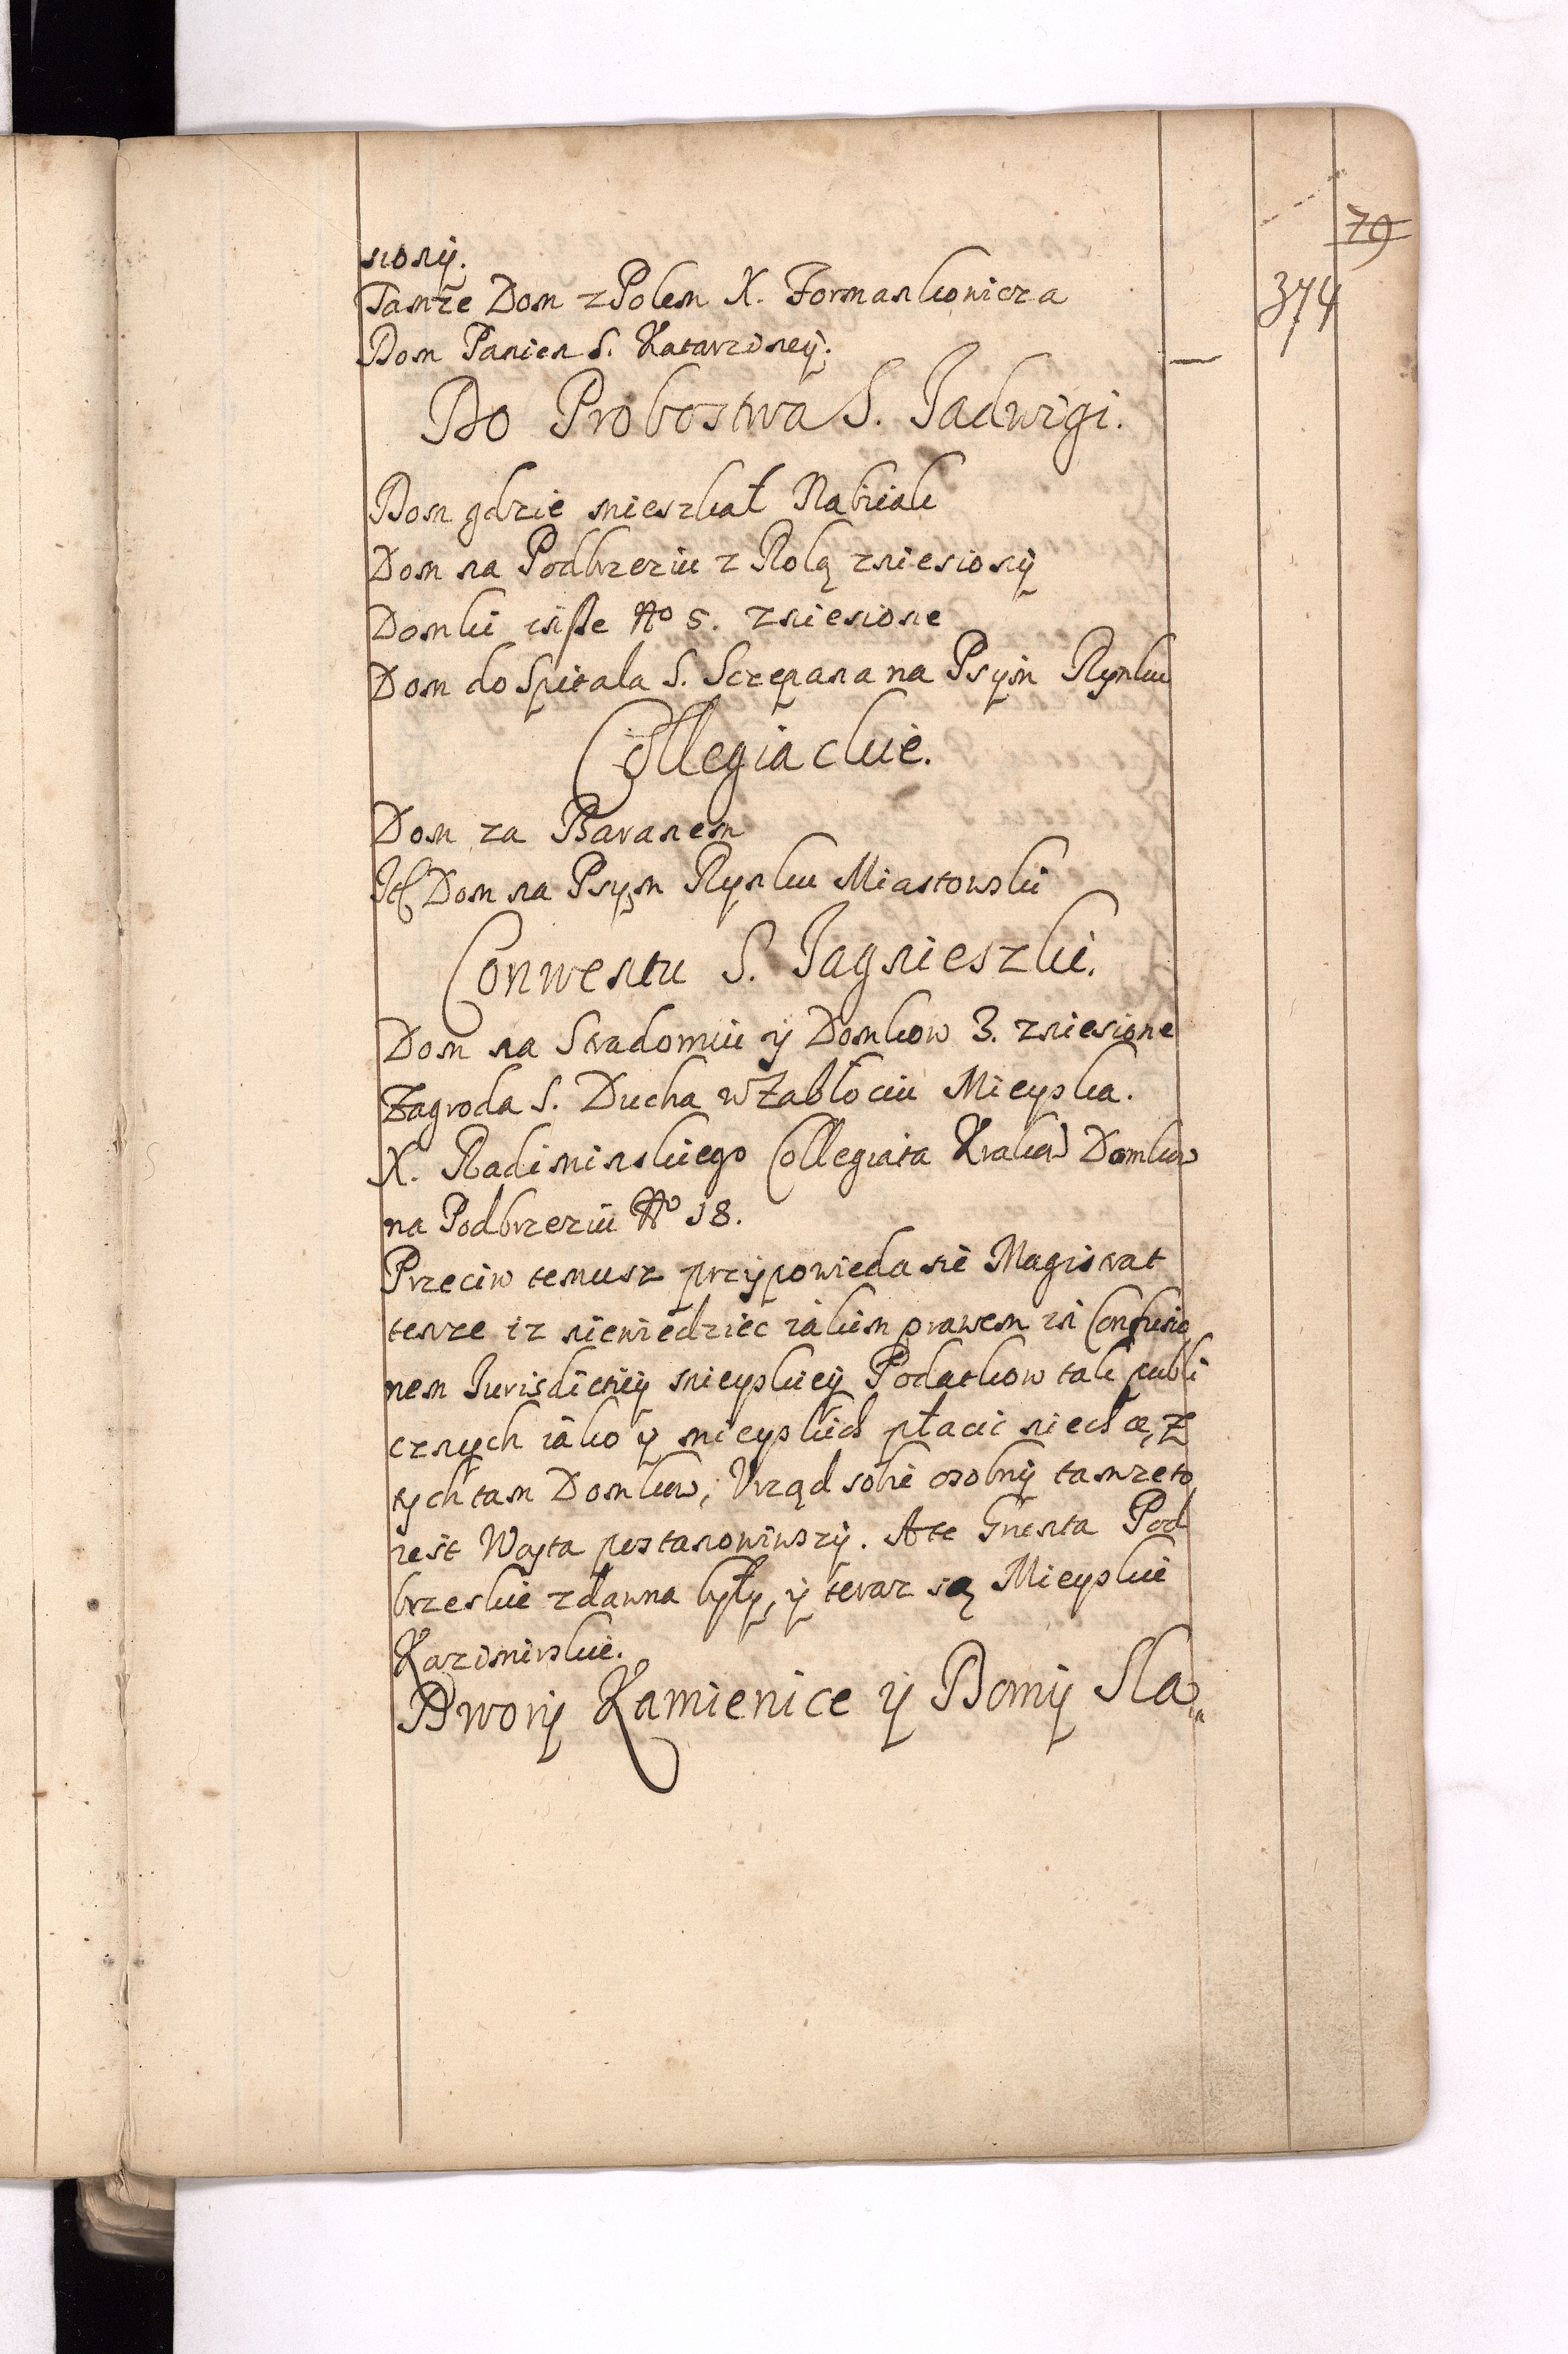 79
374
siony.
Tamże Dom z Polem X. Formankowicza
Dom Panien S. Katarziney.
Do Probostwa S. Jadwigi.
Dom gdzie mieszkał Rabiak
Dom na Podbrzeziu z Rolą zniesiony
Domki insze No 5. zniesione
Dom do Spitala S. Sczepana na Psym Rynku
Collegiackie.
Dom za Baranem
Dom na Psym Rynku Miastowski
Conwentu S. Jagnieszki.
Dom na Stradomiu y Domkow 3. zniesione
Zagroda S. Ducha w Zabłociu Mieyska.
X. Radiminskiego Collegiata Krakow Domkow
na Podbrzeziu No 18.
Przeciw temusz przypowieda sie Magistrat
tenze iz niewiedziec iakim prawem in Confusio
nem Jurisdictiey mieyskiey Podatkow tak publi
cznych iako y mieyskich płacic niechce, z
tych tam Domkow, Urząd sobie osobny tamze to
iest Woyta postanowiwszy. A te Grunta Pod
brzeskie zdawna były, y teraz są Mieyskie
Kazimirskie.
Dwory Kamienice y Domy Sla„